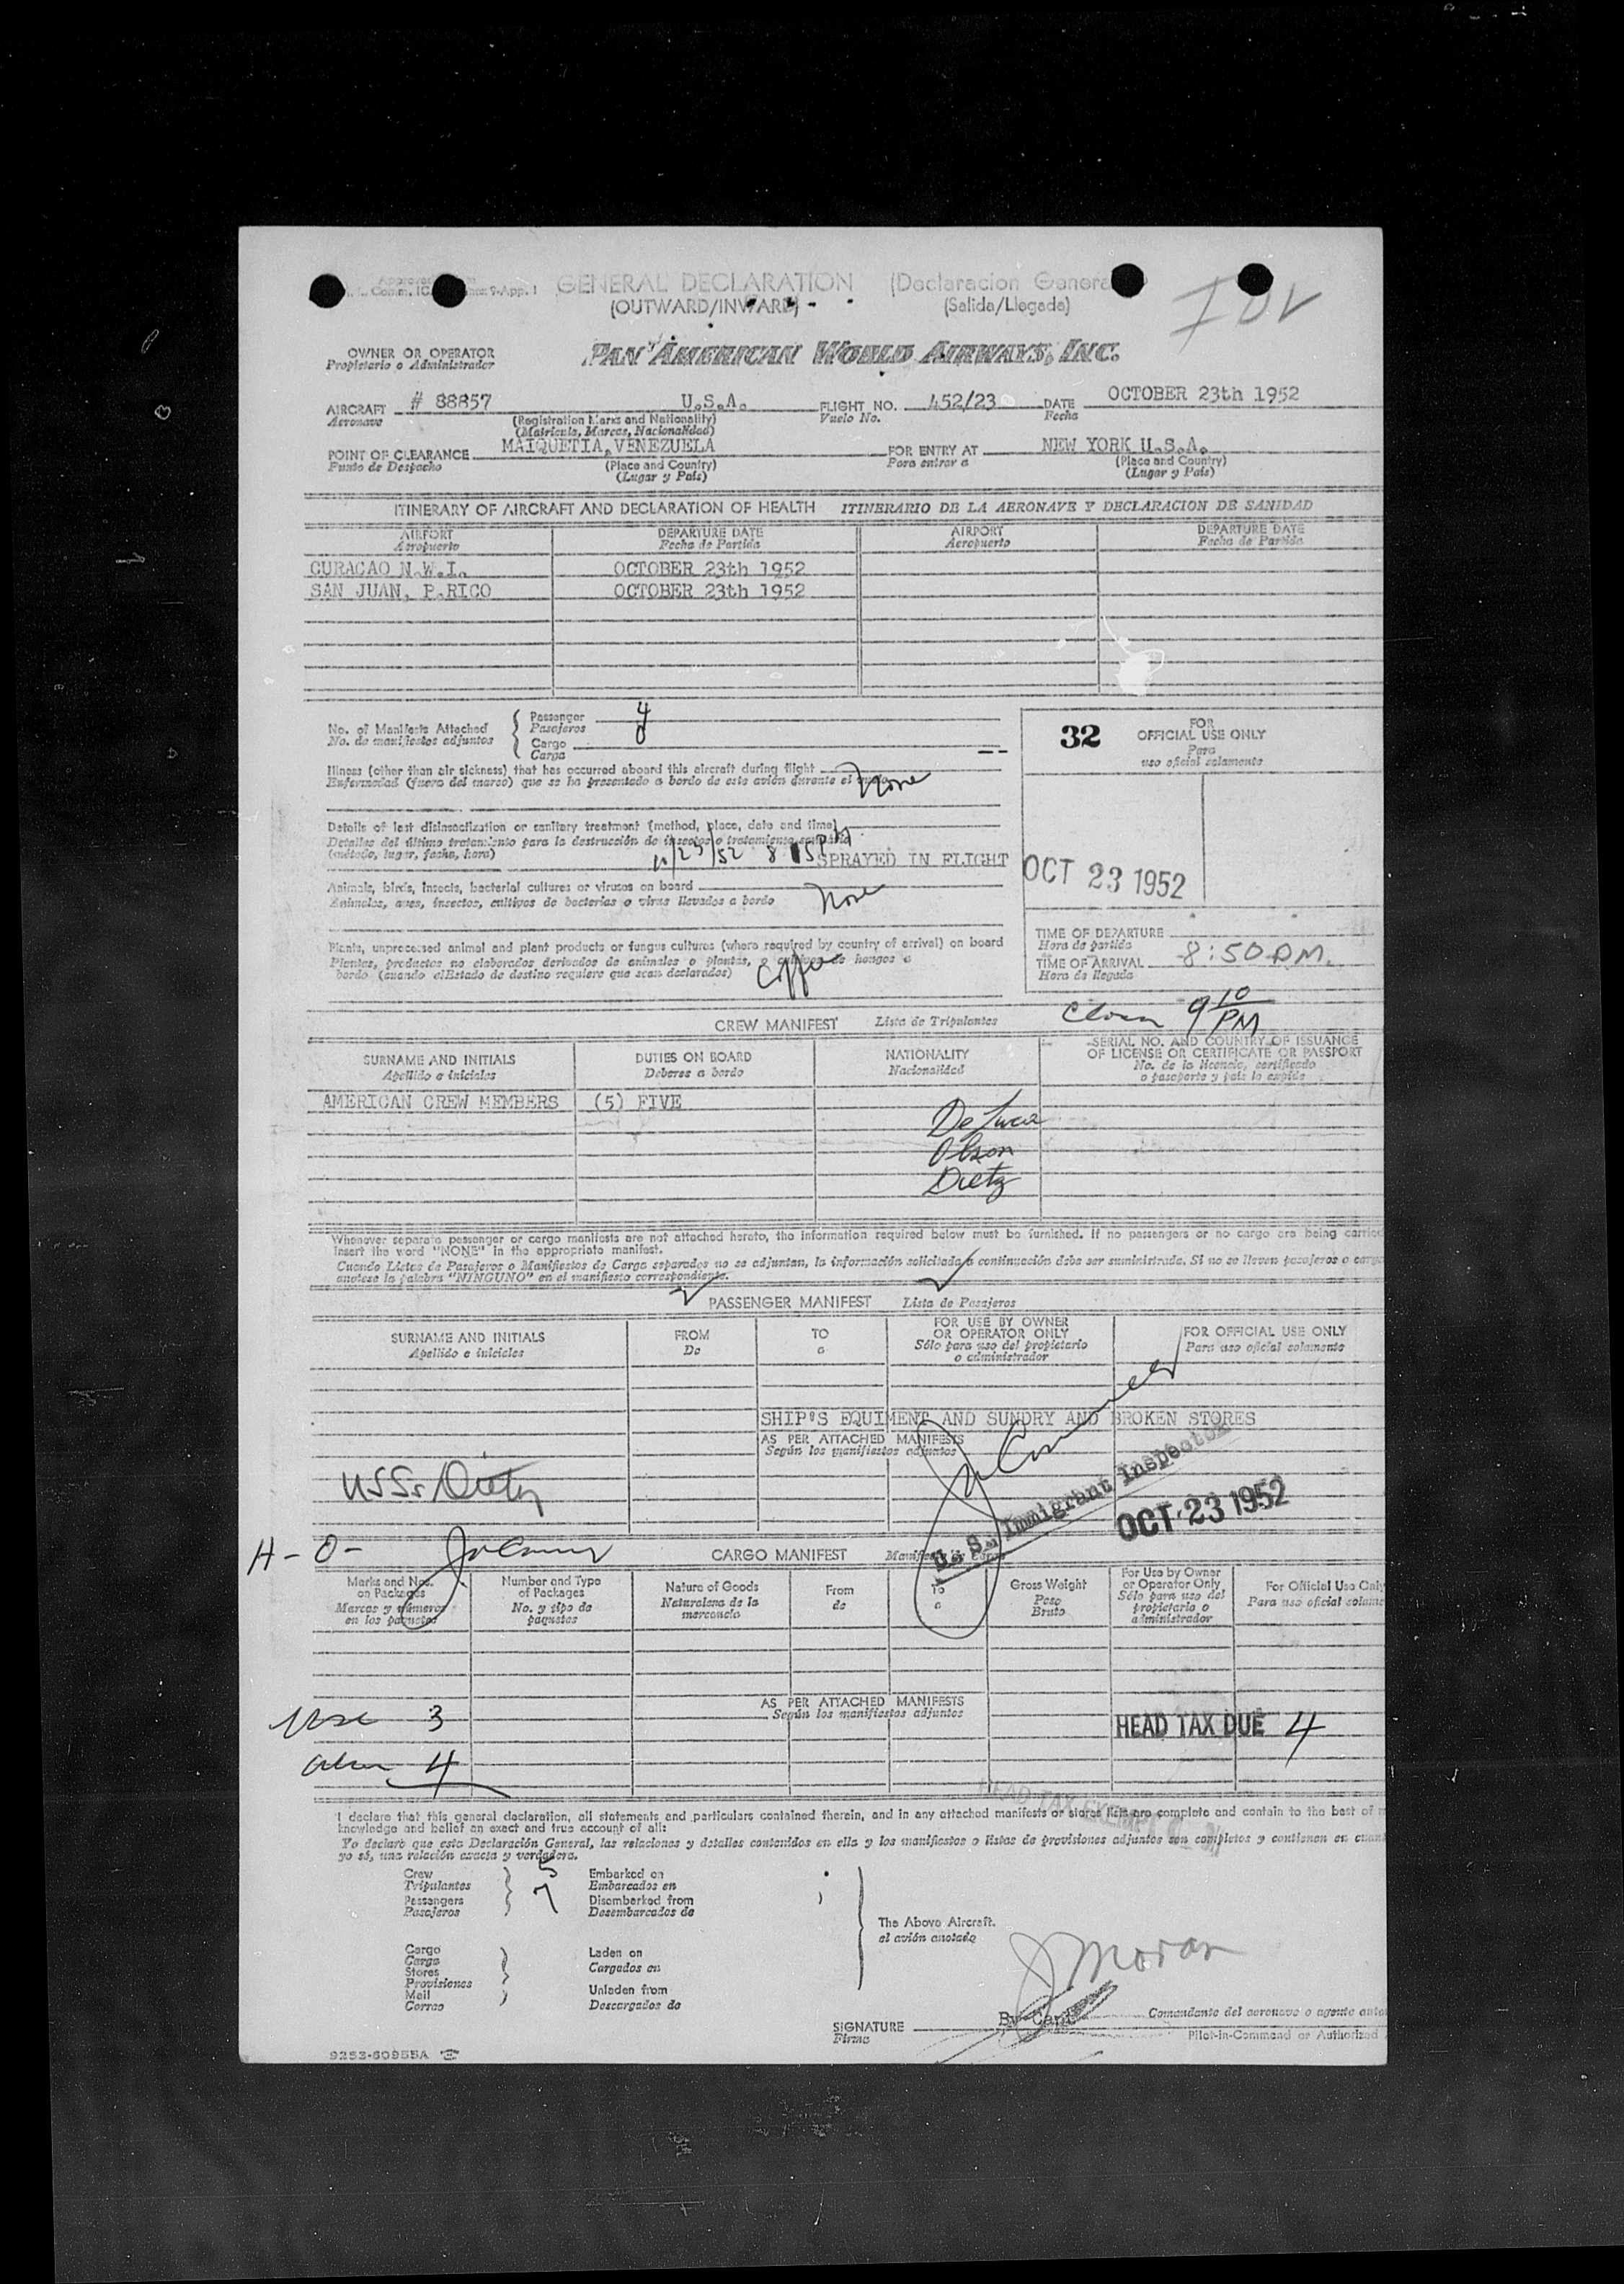 GENERAL DECLARATION (Declaracion General
(OUTWARD/INWARD) (Salida/Llegada)
OWNER OR OPERATOR
Propietario o Administrador
PAN AMERICAN WORLD AIRWAYS, INC.
AIRCRAFT # 88857 U.S.A. FLIGHT NO. 452/23 DATE OCTOBER 23th 1952
Aeronave (Registration Marks and Nationality) Vuelo No. Fecha
(Matricula, Marcas, Nacionalidad)
POINT OF CLEARANCE MAIQUETIA, VENEZUELA FOR ENTRY AT NEW YORK U.S.A.
Punto de Despacho (Place and Country) Para entrar a (Place and Country)
(Lugar y País) (Lugar y País)
ITINERARY OF AIRCRAFT AND DECLARATION OF HEALTH ITINERARIO DE LA AERONAVE Y DECLARACION DE SANIDAD
AIRPORT DEPARTURE DATE AIRPORT DEPARTURE DATE
Aeropuerto Fecha de Partida Aeropuerto Fecha de Partida
CURACAO N.W.I. OCTOBER 23th 1952
SAN JUAN, P.RICO OCTOBER 23th 1952
No. of Manifests Attached
No. de manifiestos adjuntos
Passenger 4
Pasajeros
Cargo
Carga
32 FOR
OFFICIAL USE ONLY
Para
uso oficial solamente
Illness (other than air sickness) that has occurred aboard this aircraft during flight
Enfermedad (fuera del mareo) que se ha presentado a bordo de este avión durante el vuelo None
Details of last disinsectization or sanitary treatment (method, place, date and time)
Detalles del último tratamiento para la destrucción de insectos o tratamiento sanitario
(método, lugar, fecha, hora) 10/23/52 8 15PM SPRAYED IN FLIGHT
OCT 23 1952
Animals, birds, insects, bacterial cultures or viruses on board
Animales, aves, insectos, cultivos de bacterias o virus llevados a bordo None
Plants, unprocessed animal and plant products or fungus cultures (where required by country of arrival) on board
Plantas, productos no elaborados derivados de animales o plantas, o cultivos de hongos a
bordo (cuando el Estado de destino requiere que sean declarados) Coffee
TIME OF DEPARTURE
Hora de partida
TIME OF ARRIVAL 8:50 P.M.
Hora de llegada
9 10 PM
CREW MANIFEST Lista de Tripulantes
SURNAME AND INITIALS DUTIES ON BOARD NATIONALITY SERIAL NO. AND COUNTRY OF ISSUANCE
Apellido e iniciales Deberes a bordo Nacionalidad OF LICENSE OR CERTIFICATE OR PASSPORT
No. de la licencia, certificado
o pasaporte y país lo expide
AMERICAN CREW MEMBERS (5) FIVE
De Luca
Olson
Dietz
Whenever separate passenger or cargo manifests are not attached hereto, the information required below must be furnished. If no passengers or no cargo are being carried
insert the word "NONE" in the appropriate manifest.
Cuando Listas de Pasajeros o Manifiestos de Carga separados no se adjuntan, la información solicitada a continuación debe ser suministrada. Si no se lleven pasajeros o carga
anotese la palabra "NINGUNO" en el manifiesto correspondiente.
PASSENGER MANIFEST Lista de Pasajeros
SURNAME AND INITIALS FROM TO FOR USE BY OWNER FOR OFFICIAL USE ONLY
Apellido e iniciales De a OR OPERATOR ONLY Para uso oficial solamente
Sólo para uso del propietario
o administrador
SHIP'S EQUIMENT AND SUNDRY AND BROKEN STORES
AS PER ATTACHED MANIFESTS
Según los manifiestos adjuntos
Dietz
U. S. Immigrant Inspector
OCT 23 1952
H - O -
CARGO MANIFEST
Marks and Nos. Number and Type Nature of Goods From To Gross Weight For Use by Owner For Official Use Only
on Packages of Packages Naturaleza de la de a Peso or Operator Only Para uso oficial solame
Marcas y números No. y tipo de mercancía Bruto Sólo para uso del
en los paquetes paquetes propietario o
administrador
AS PER ATTACHED MANIFESTS
Según los manifiestos adjuntos
3
HEAD TAX DUE 4
4
HEAD TAX EXEMPT
I declare that this general declaration, all statements and particulars contained therein, and in any attached manifests or stores lists are complete and contain to the best of m
knowledge and belief an exact and true account of all:
Yo declaro que esta Declaración General, las relaciones y detalles contenidos en ella y los manifiestos o listas de provisiones adjuntos son completos y contienen en cuan
yo sé, una relación exacta y verdadera.
Crew 5 Embarked on
Tripulantes Embarcados en
Passengers 7 Disembarked from
Pasajeros Desembarcados de
The Above Aircraft.
el avión anotado
Cargo Laden on
Carga Cargados en
Stores
Provisiones
Mail Unladen from
Correo Descargados de
J Moran
SIGNATURE By Capt. Comandante del aeronave o agente auto
Firma Pilot-in-Command or Authorized
9253-60955A